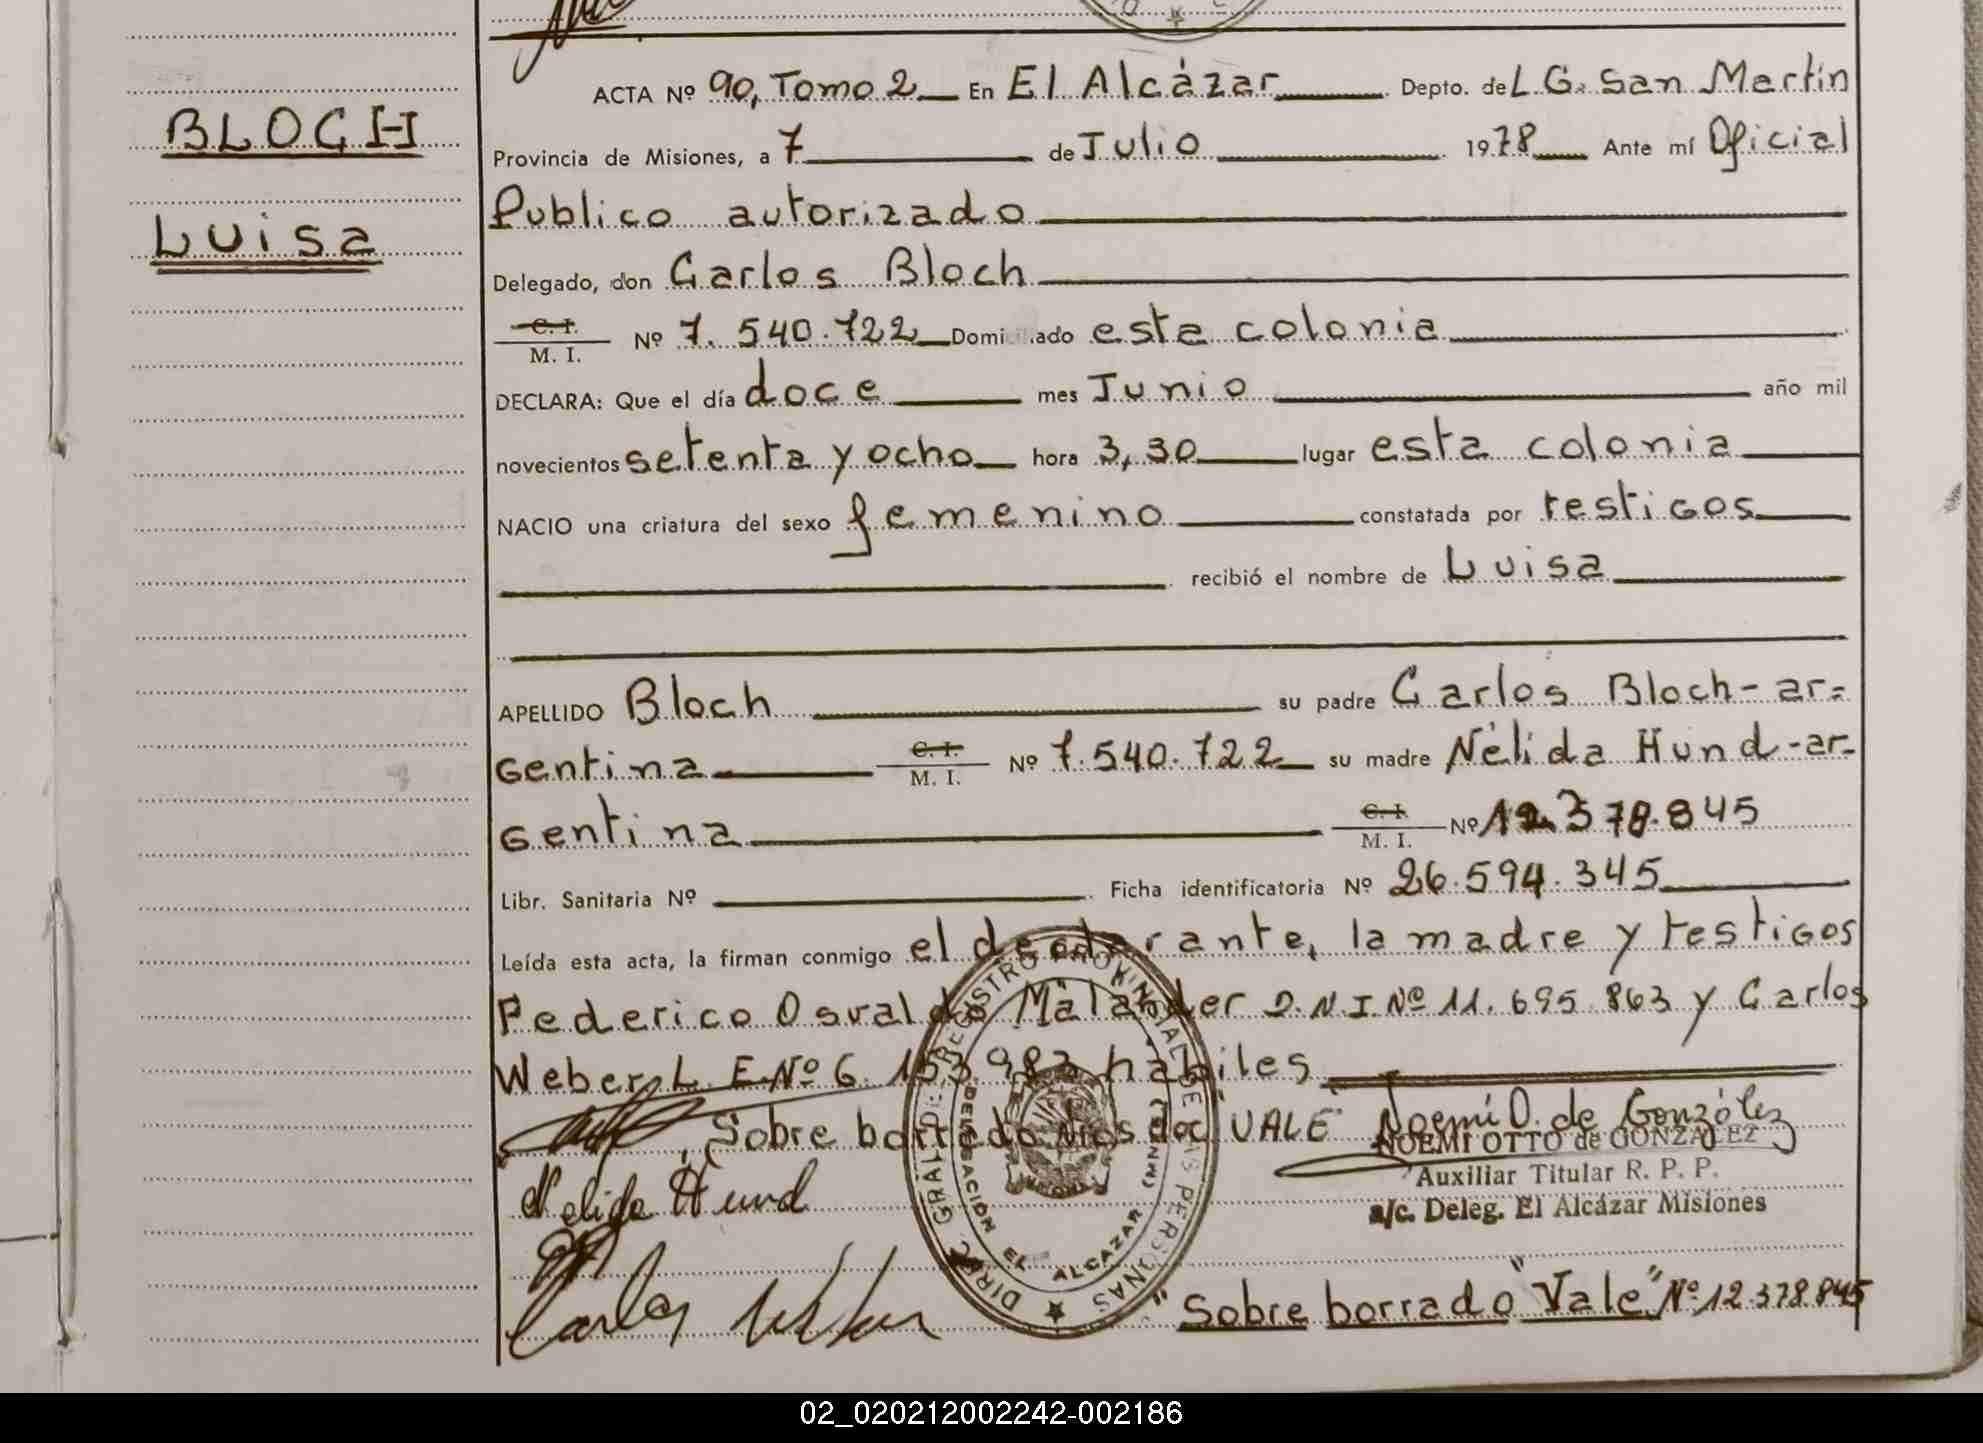 BLOCH
Luisa
ACTA Nº 90, Tomo 2 En El Alcázar Depto. de L. G. San Martín
Provincia de Misiones, a 7 de Julio 1978 Ante mí Oficial
Publico autorizado
Delegado, don Carlos Bloch
C. I.
M. I. Nº 7.540.722 Domiciliado esta colonia
DECLARA: Que el día doce mes Junio año mil
novecientos setenta y ocho hora 3,30 lugar esta colonia
NACIO una criatura del sexo femenino constatada por testigos
recibió el nombre de Luisa
APELLIDO Bloch su padre Carlos Bloch - ar=
gentina C. I. M. I. Nº 7.540.722 su madre Nélida Hund - ar-
gentina C. I. M. I. Nº 12.378.845
Libr. Sanitaria Nº Ficha identificatoria Nº 26.594.345
Leída esta acta, la firman conmigo el declarante, la madre y testigos
Federico Osvaldo Malander D.N.I.Nº 11.695.863 y Carlos
Weber L.E.Nº 6.153.983 hábiles
Sobre borrado VALE Noemí O. de González
NOEMI OTTO de GONZALEZ
Auxiliar Titular R. P. P.
a/c. Deleg. El Alcázar Misiones
Nelida Hund
DIREC. GRAL DE REGISTRO PROVINCIAL DE LAS PERSONAS
DELEGACION EL ALCAZAR (MNES)
"Sobre borrado "Vale" Nº 12.378.845
02_020212002242-002186